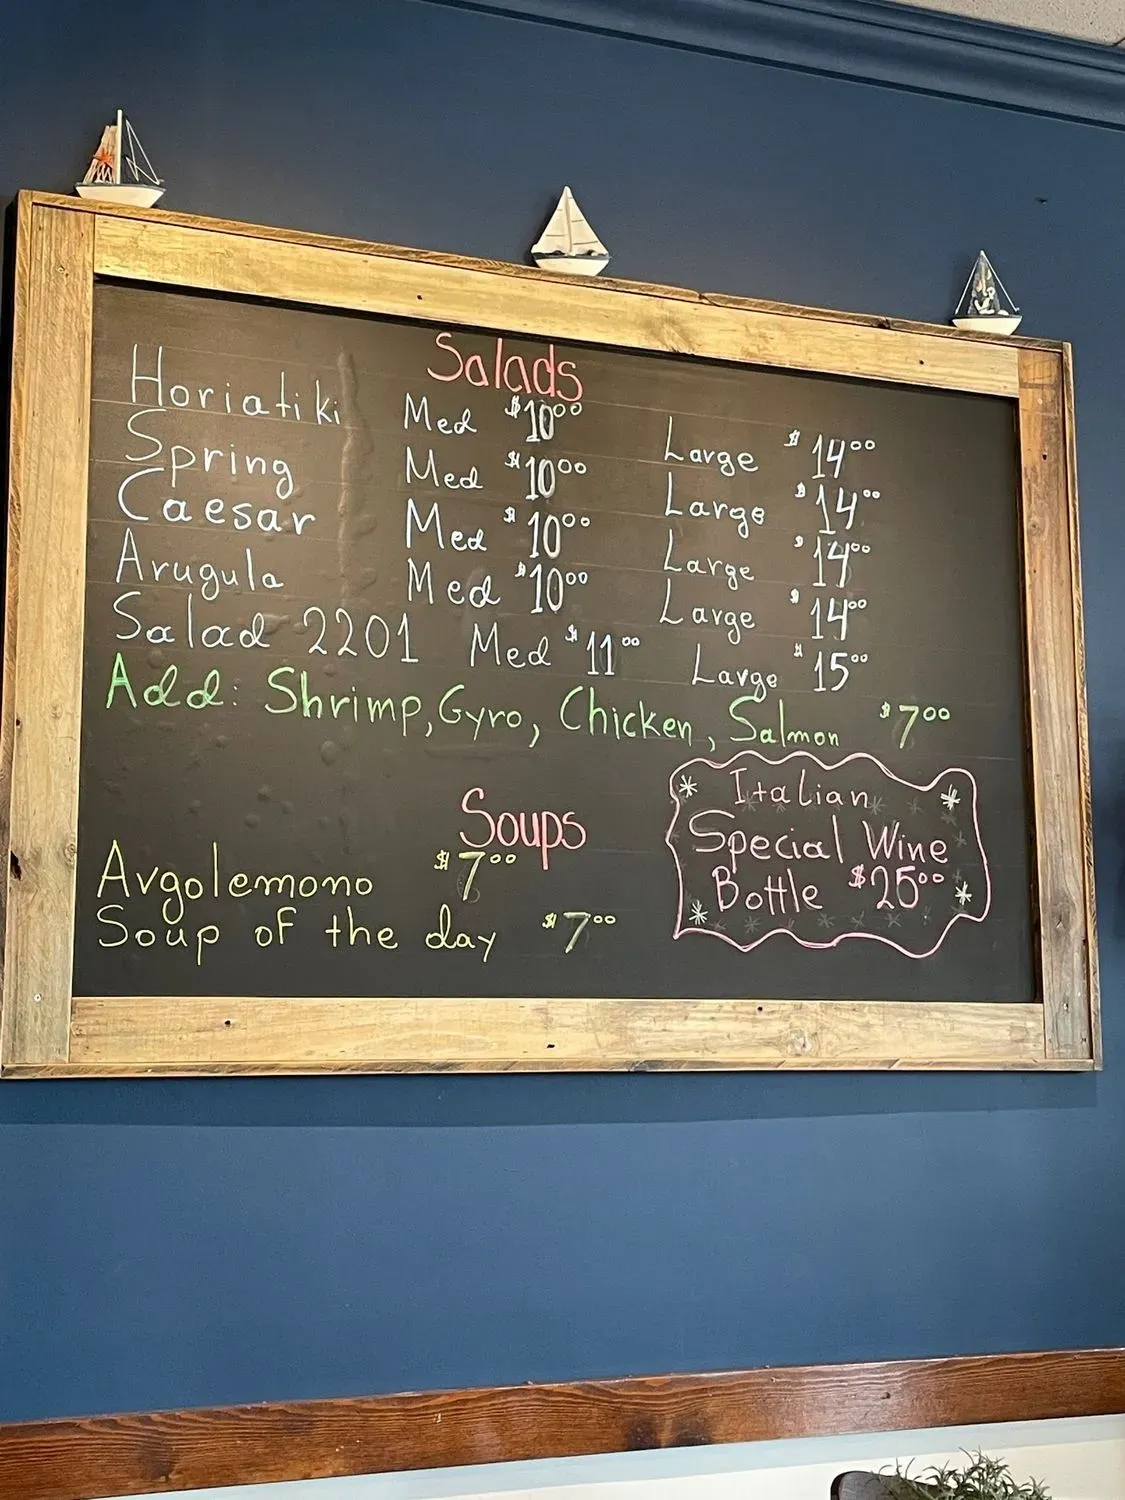 Salads
Horiatiki Med $10.00 Large $14.00
Spring Med $10.00 Large $14.00
Caesar Med $10.00 Large $14.00
Arugula Med $10.00 Large $14.00
Salad 2201 Med $11.00 Large $15.00
Add: Shrimp, Gyro, Chicken, Salmon $7.00
Soups
Avgolemono $7.00
Soup of the day $7.00
Italian
Special Wine
Bottle $25.00